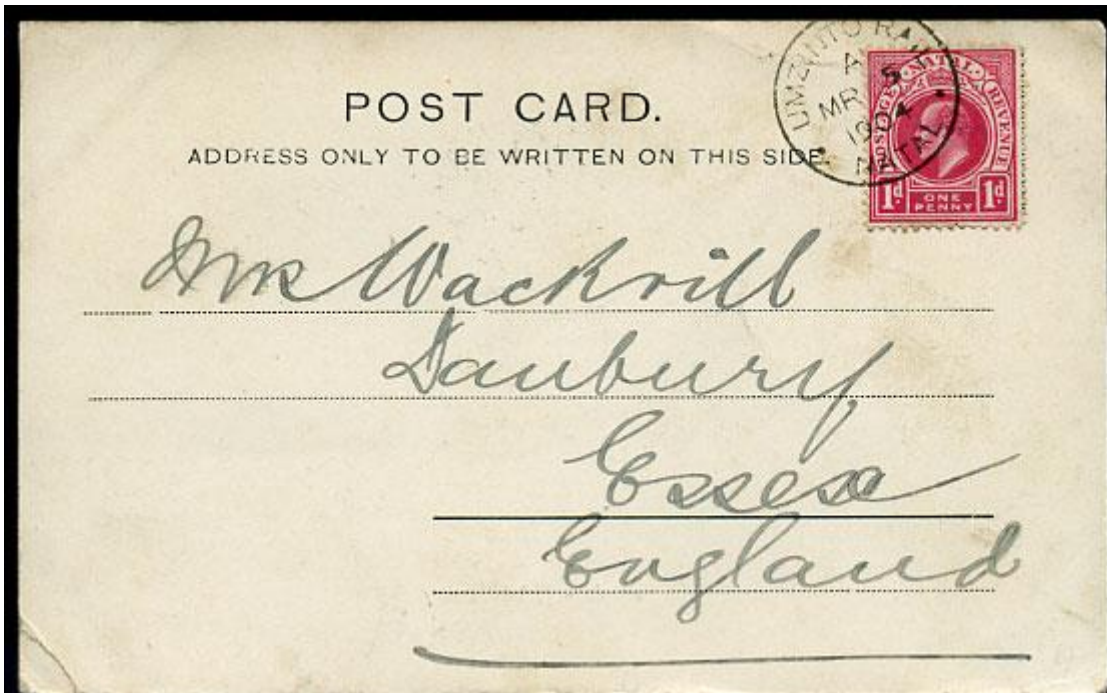 POST CARD.
ADDRESS ONLY TO BE WRITTEN ON THIS SIDE.
UMZINTO RAIL
A
MR 5
1904
NATAL
POSTAGE NATAL REVENUE
1d ONE PENNY 1d
Mrs Wackrill
Danbury
Essex
England